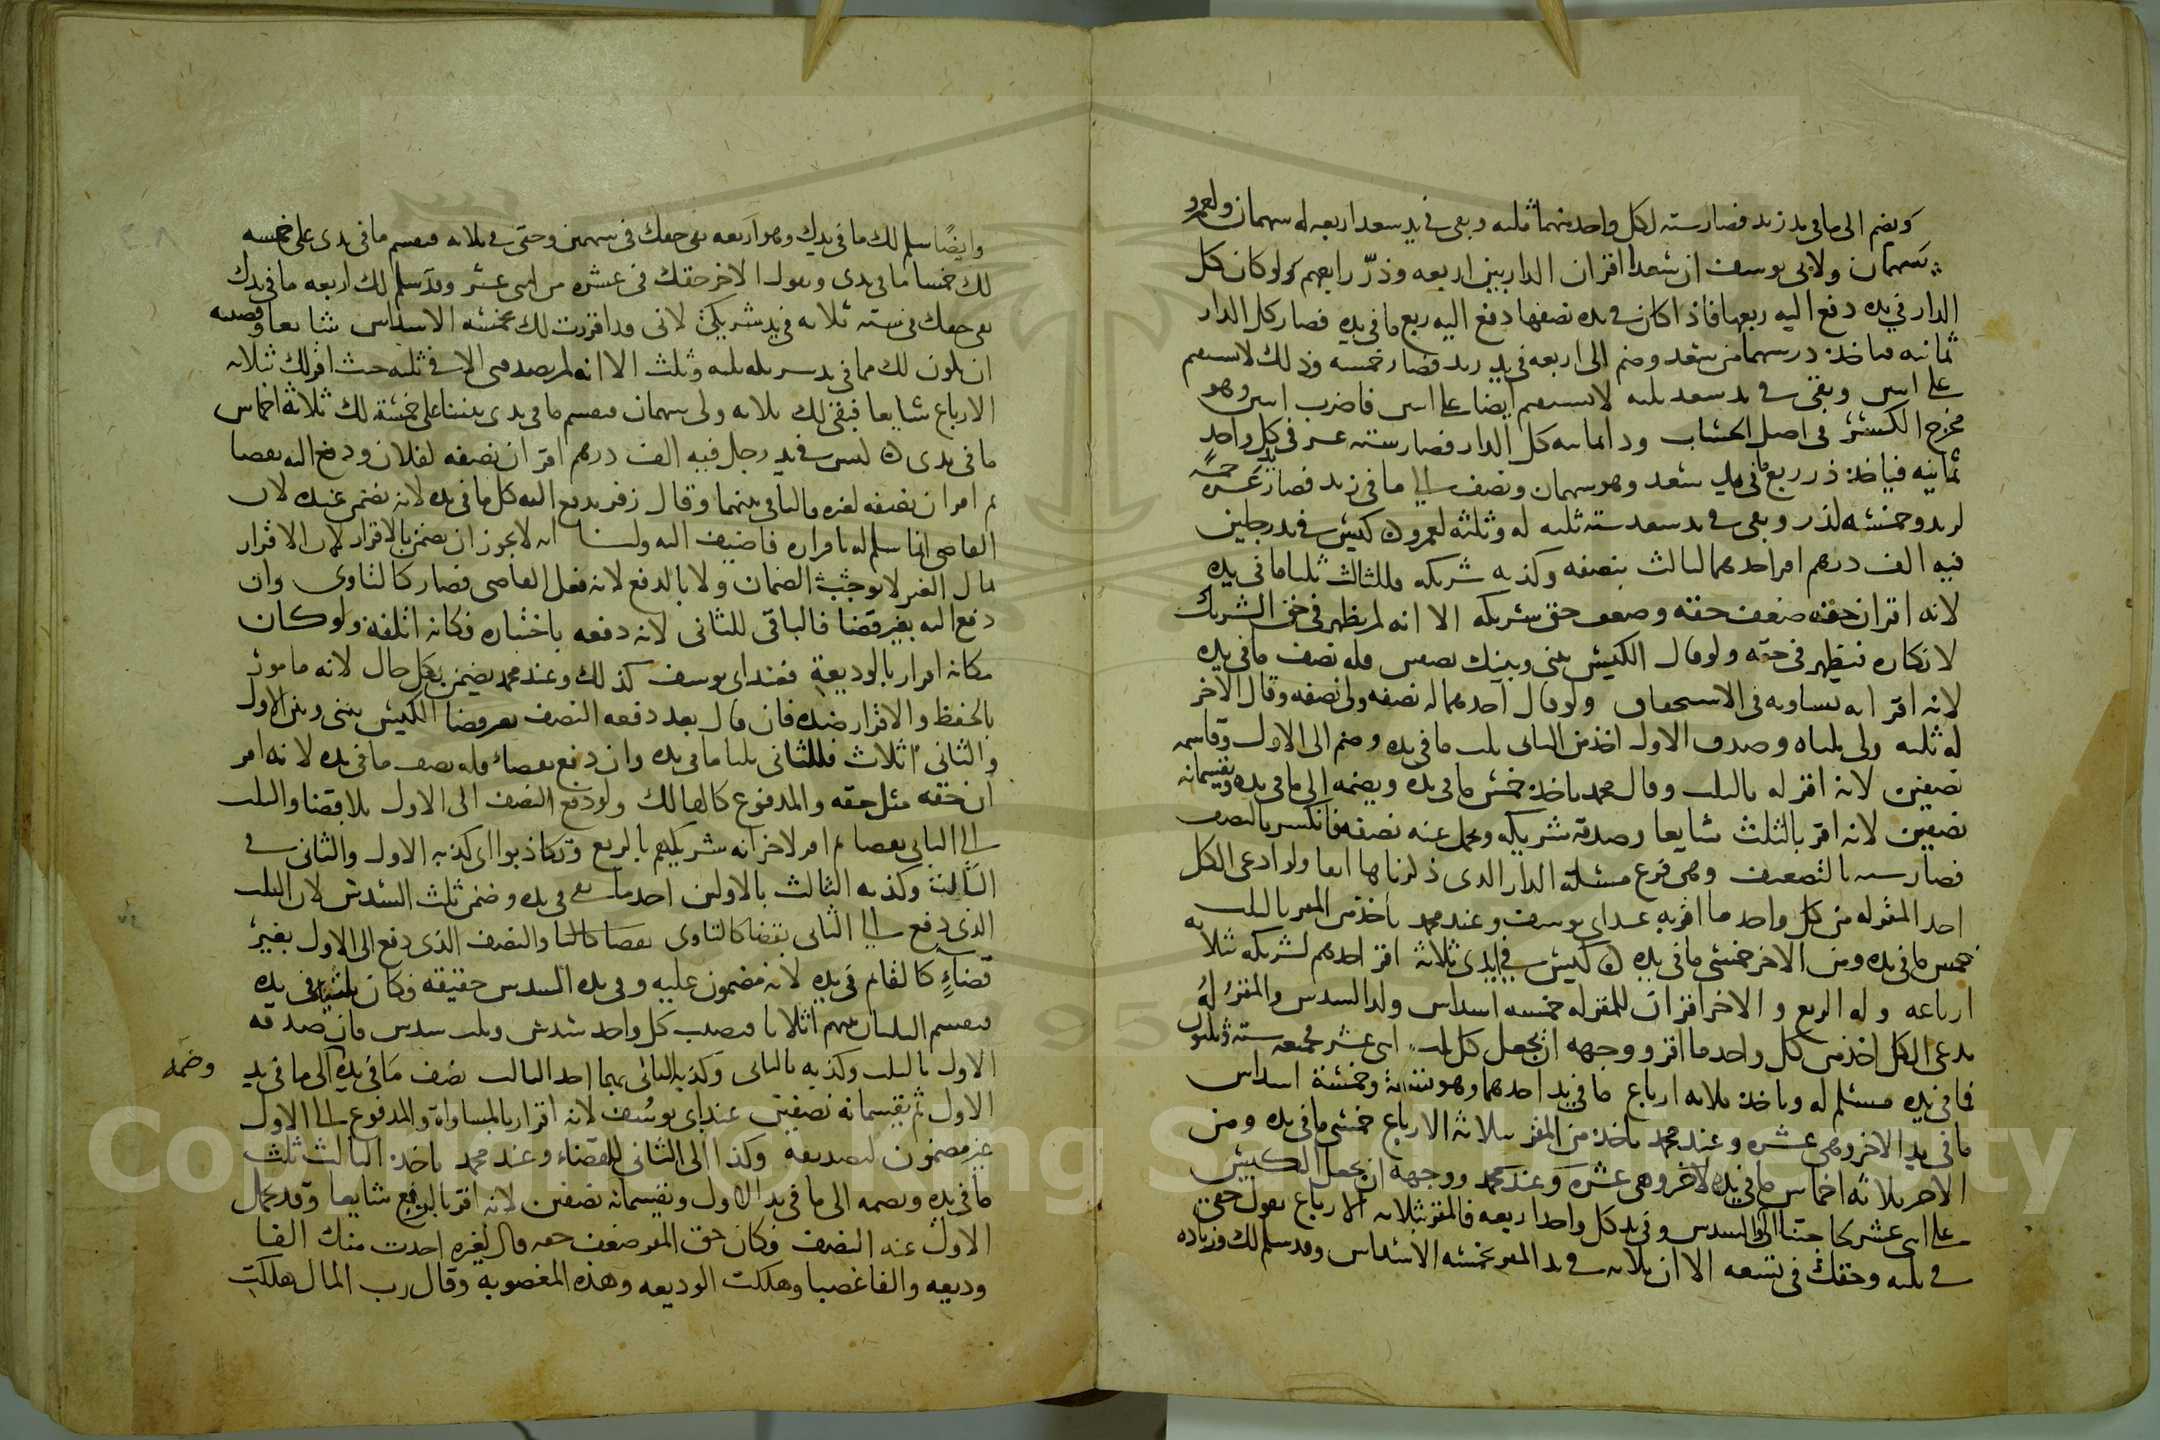 ويضم الى ما في يد زيد فصار ستة لكل واحد منهما ثلثه وبقي في يد سعد اربعة له سهمان ولعمرو
سهمان ولابي يوسف ان سعدا اقر ان الدار بين اربعة وذر رابعهم ولو كان كل
الدار في يده دفع اليه ربعها فاذا كان في يده نصفها دفع اليه ربع ما في يده فصار كل الدار
ثمانية فياخذ ذر سهما من سعد وضم الى اربعة في يد زيد فصار خمسة وذلك لا يستقيم
على اثنين وبقي في يد سعد ثلثه لا يستقيم ايضا على اثنين فاضرب اثنين وهو
مخرج الكسر في اصل الحساب وذا ثمانية كل الدار فصار ستة عشر في كل واحد
ثمانية فياخذ ذر ربع ما في يد سعد وهو سهمان ونصف الى ما في زيد فصار عشرة خمسة
لزيد وخمسة لذر وبقي في يد سعد ستة ثلثه له وثلثة لعمرو كيس في يد رجلين
فيه الف درهم اقر احدهما لثالث بنصفه وكذبه شريكه فللثالث ثلثا ما في يده
لانه اقر ان حقه ضعف حقه وضعف حق شريكه الا انه لم يظهر في حق الشريك
لانكاره فيظهر في حقه ولو قال الكيس بيني وبينك نصفين فله نصف ما في يده
لانه اقر انه يساويه في الاستحقاق ولو قال احدهما له نصفه ولي نصفه وقال الاخر
له ثلثه ولي ثلثاه وصدق الاول اخذ من الثاني ثلث ما في يده وضم الى الاول وقاسمه
نصفين لانه اقر له بالثلث وقال محمد ياخذ خمس ما في يده ويضمه الى ما في يده ويقتسمانه
نصفين لانه اقر بالثلث شايعا وصدقه شريكه وتحمل عنه نصفه فانكسر بالنصف
فصار ستة بالتضعيف وهي فرع مسئلة الدار الذي ذكرناها انفا ولو ادعى الكل
احد المقر له من كل واحد ما اقر به عند ابي يوسف وعند محمد ياخذ من المقر بالثلث
خمس ما في يده ومن الاخر خمسي ما في يده كيس في ايدي ثلاثة اقر احدهم لشريكه ثلاثة
ارباعه وله الربع والاخر اقر ان للمقر له خمسة اسداس وله السدس والمقر له
يدعى الكل اخذ من كل واحد ما اقر ووجهه ان يجعل كل ثلث اثني عشر فجميعه ستة وثلثون
فما في يده مسلم له وياخذ ثلاثة ارباع ما في يد احدهما وهو تسعة وخمسة اسداس
ما في يد الاخر وهي عشرة وعند محمد ياخذ من المقر بثلاثة الارباع خمسي ما في يده ومن
الاخر ثلاثة اخماس ما في يده الاخر وهي عشرة وعند محمد ووجهه ان يجعل الكيس
على اثني عشر لحاجتنا الى السدس وفي يد كل واحد اربعة فالمقر بثلاثة الارباع يقول حقي
في ثلثه وحقك في تسعة الا ان ثلاثة في يد المقر بخمسة الاسداس وقد سلم لك وزيادة
وايضا سلم لك ما في يديك وهو اربعة بقي حقك في سهمين وحقي في ثلاثة فيقسم ما في يدي على خمسة
لك خمسا ما في يدي ويقول الاخر حقك في عشرة من اثني عشر وقد سلم لك اربعة ما في يدك
بقي حقك في ستة ثلاثة في يد شريكي لاني قد اقررت لك بخمسة الاسداس شايعا وقضيته
ان يكون لك مما في يد شريكي ثلثه وثلث الا انه لم يصدقني الا في ثلثه حيث اقر لك ثلاثة
الارباع شايعا فبقي لك ثلاثة ولي سهمان فيقسم ما في يدي بيننا على خمسة لك ثلاثة اخماس
ما في يدي كيس في يد رجل فيه الف درهم اقر ان نصفه لفلان ودفع اليه بقضا
ثم اقر ان نصفه لغيره فالباقي بينهما وقال زفر يدفع اليه كل ما في يده لانه يضمن عنده لان
القاضي انما سلم له باقراره فاضيف اليه ولنا انه لا يجوز ان يضمن بالاقرار لان الاقرار
بمال الغير لا يوجب الضمان ولا بالدفع لانه فعل القاضي فصار كالتاوي وان
دفع اليه بغير قضا فالباقي للثاني لانه دفعه باختياره فكانه اتلفه ولو كان
مكانه اقرار بالوديعة فعند ابي يوسف كذلك وعند محمد يضمن بكل حال لانه مامور
بالحفظ والاقرار ضده فان قال بعد دفعه النصف بغير قضا الكيس بيني وبين الاول
والثاني اثلاث فللثاني ثلثا ما في يده وان دفع بقضاء فله نصف ما في يده لانه اقر
ان حقه مثل حقه والمدفوع كالهالك ولو دفع النصف الى الاول بلا قضا والثلث
الى الثاني بقضا ثم اقر لاخر انه شريكهم بالربع وتكاذبوا اي كذبه الاول والثاني في
الثالث وكذبه الثالث بالاولين اخذ ما بقي في يده وضمن ثلث السدس لان الثلث
الذي دفع الى الثاني بقضا كالتاوي بقضا كالنا والنصف الذي دفع الى الاول بغير
قضاء كالقائم في يده لانه مضمون عليه وفي يده السدس حقيقة فكان ثلثاه في يده
فيقسم الثلثان بينهم اثلاثا فنصيب كل واحد سدس وثلث سدس فان صدقه
الاول بالثلث وكذبه بالثاني وكذبه الثاني بهما اخذ الثالث نصف ما في يده الى ما في يد
وضمه
الاول ثم يقتسمانه نصفين عند ابي يوسف لانه اقرار بالمساواة والمدفوع الى الاول
غير مضمون لتصديقه وكذا الى الثاني للقضاء وعند محمد ياخذ الثالث ثلث
ما في يده ويضمه الى ما في يد الاول ويقتسمانه نصفين لانه اقر بالربع شايعا وقد تحمل
الاول عنه النصف فكان حق المقر ضعف حقه قال لغيره اخذت منك الفا
وديعه والفا غصبا وهلكت الوديعه وهذه المغصوبه وقال رب المال هلكت